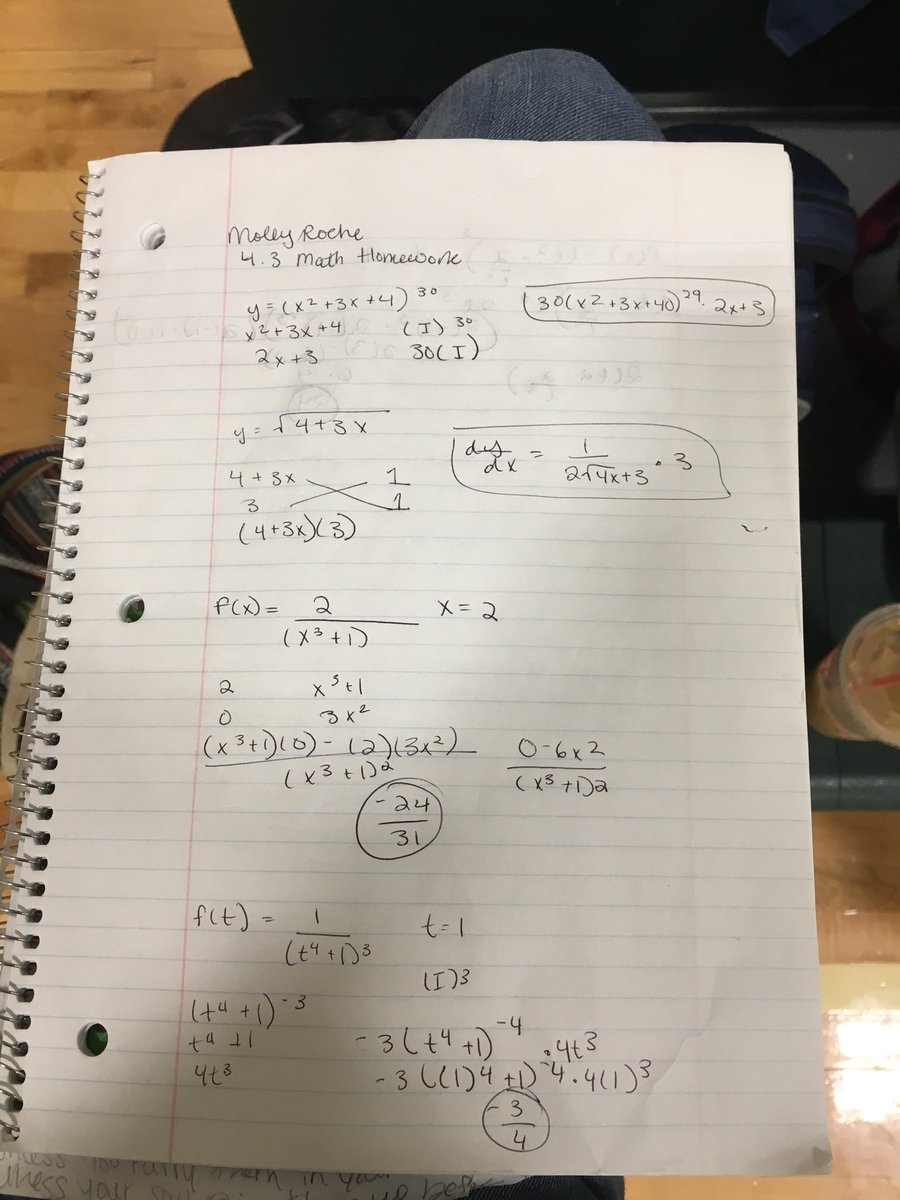 Molly Roche
4.3 Math Homework
y = (x² + 3x + 4)³⁰
x² + 3x + 4 (I)³⁰
2x + 3 30(I)
30(x2 + 3x + 40)²⁹ · 2x + 3
y = √4 + 3x
4 + 3x 1
3 1
(4 + 3x)(3)
dy/dx = 1/(2√4x + 3) · 3
f(x) = 2/(x³ + 1) x = 2
2 x³ + 1
0 3x²
(x³ + 1)(0) - (2)(3x²)/(x³ + 1)2 0 - 6x2/(x³ + 1)2
-24/31
f(t) = 1/(t⁴ + 1)³ t = 1
(I)3
(t⁴ + 1)⁻³
t⁴ + 1 -3(t⁴ + 1)⁻⁴ · 4t³
4t³ -3((1)⁴ + 1)⁻⁴ · 4(1)³
-3/4